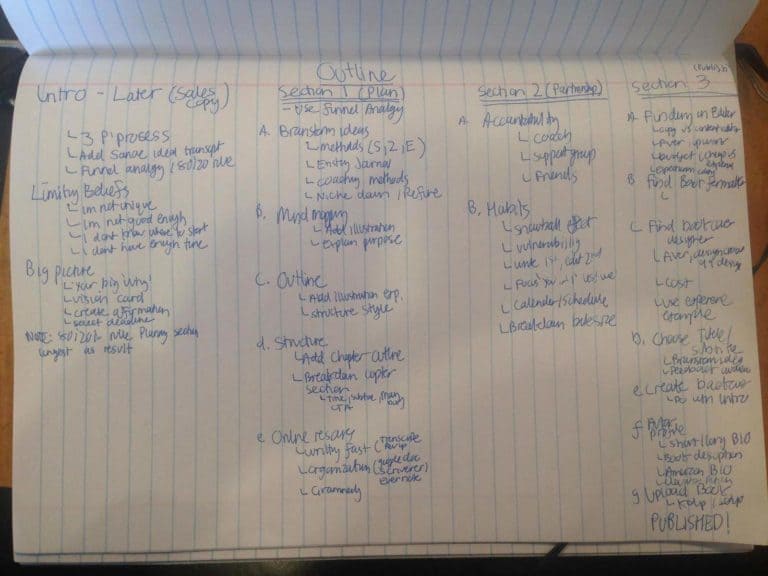 Outline
Intro - Later (Sales copy)
↳ 3 P process
↳ Add Sanae ideal transcript
↳ Funnel analogy / 80/20 rule
Limiting Beliefs
↳ Im not unique
↳ Im not good enough
↳ I dont know where to start
↳ I dont have enough time
Big picture
↳ Your big why!
↳ vision card
↳ create affirmation
↳ select deadline
NOTE: 80/20% rule Planning section
longest as result
Section 1 (Plan)
- Use Funnel Analogy
A. Brainstorm ideas
↳ methods (S, 2, E)
↳ Entity Journal
↳ coaching methods
↳ Niche down / Refine
B. Mind mapping
↳ Add illustration
↳ Explain purpose
C. Outline
↳ Add illustration exp.
↳ structure style
d. Structure
↳ Add Chapter outline
↳ Breakdown
section
↳ Title, subtitle, main body
e Online
↳ writing fast (transcribe
↳ organization (google doc
scrivener)
evernote
↳ Grammarly
Section 2 (Partnership)
A. Accountability
↳ coach
↳ support group
↳ Friends
B. Habits
↳ snowball effect
↳ vulnerability
↳ write 1st, edit 2nd
↳ Focus
↳ Calender/schedule
↳ Breakdown bitesize
(Publish)
Section 3
A. Finding an Editor
↳ copy vs content editor
↳ Fiver, upwork
↳ budget (cheap vs
expensive)
B Find Book formatter
↳
C. Find bookcover
designer
↳ Fiver, design crowd
99 design
↳ cost
↳ use experience
example
D. Choose Title/
Subtitle
↳ Brainstorm idea
↳ Feedback audience
e Create backcover
↳ Do with Intro
f Author
profile
↳ short/long BIO
↳ Book description
↳ Amazon BIO
g Upload Book
↳ Kdp /
PUBLISHED!